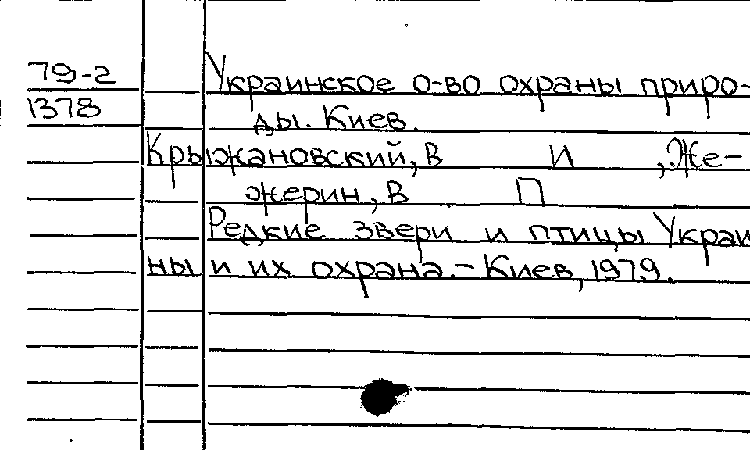 79-2
1378
Украинское о-во охраны приро-
ды. Киев.
Крыжановский, В И , Же-
жерин, В. П
Редкие звери и птицы Украи
ны и их охрана. - Киев, 1979.